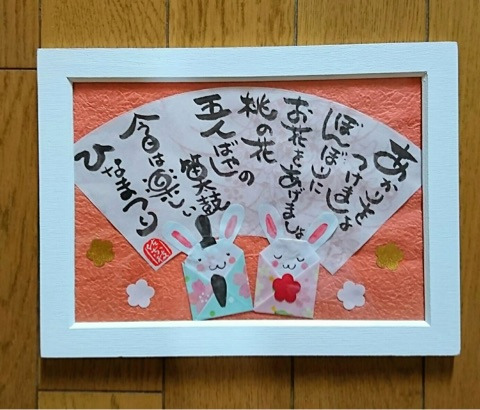 あかりを
つけましょ
ぼんぼりに
お花をあげましょ
桃の花
五人ばやしの
笛太鼓
今日は楽しい
ひなまつり